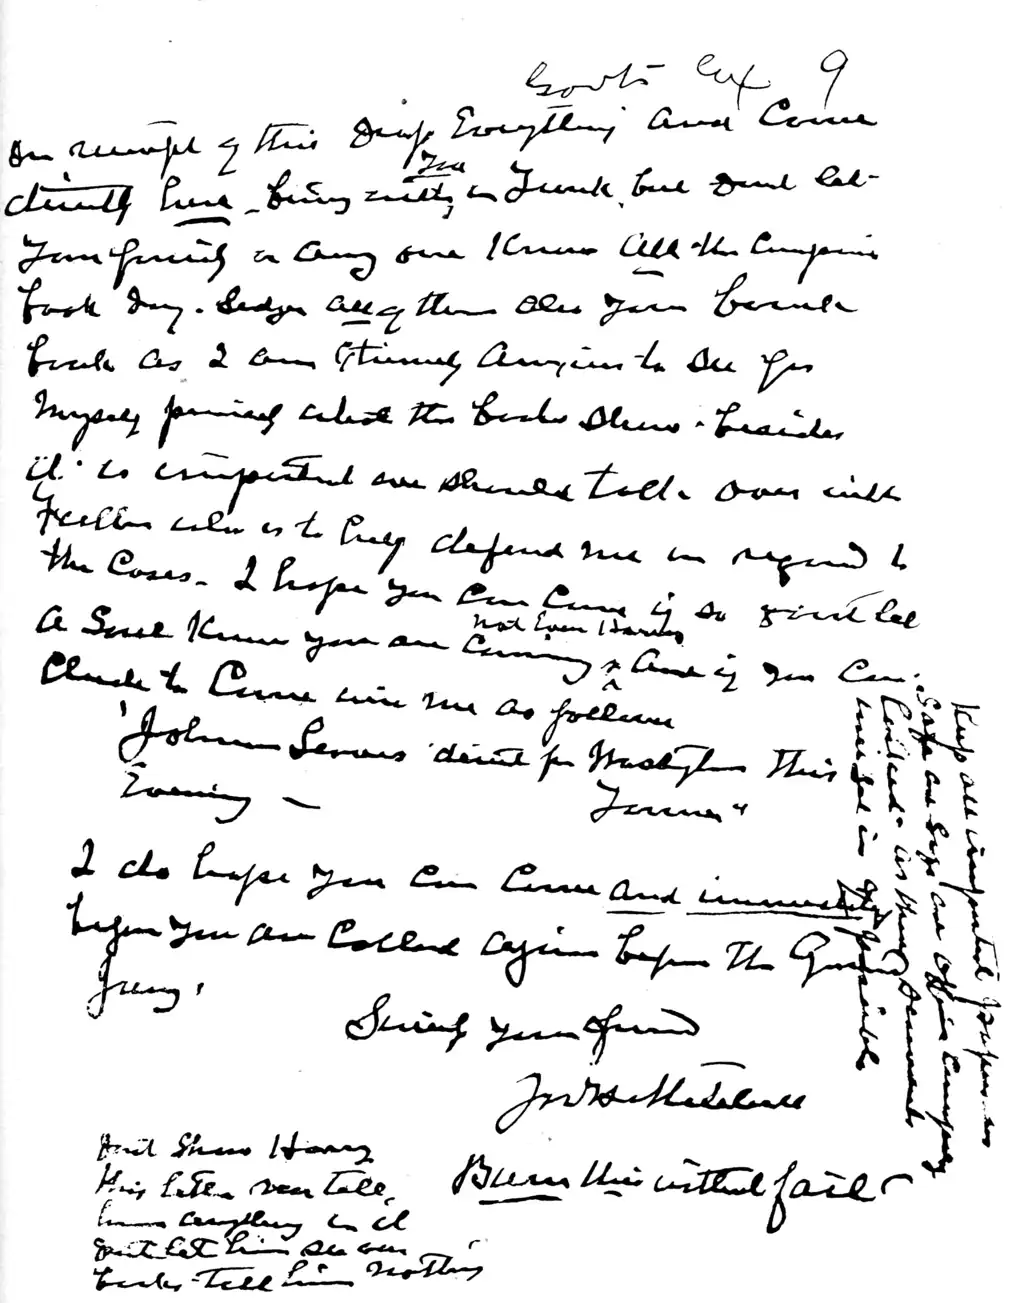 Govt's Ex 9
On receipt of this Drop Everything and Come
directly here - bring with you in Trunk, but dont let
Your family or any one Know All the Company
book Day - Ledger all of them Also Your
book as I am Extremely Anxious to See for
Myself precisely what the books Show - besides
it is important we should talk over with
who is to help defend me in regard to
the Cases - I hope you can Come if so dont let
a Soul Know you are Coming not Even Harry And if you Can
to Come wire me as follows
"John leaves direct for Washington this
Evening — "
I do hope you Can Come and immediately
before You are Called Again before the Grand
Jury.
Sincerely Your friend
Jno H. Mitchell
Burn this without fail
Dont Show Harry
this letter nor tell
him anything in it
dont let him see our
books - tell him Nothing
Keep all important papers in
Safe